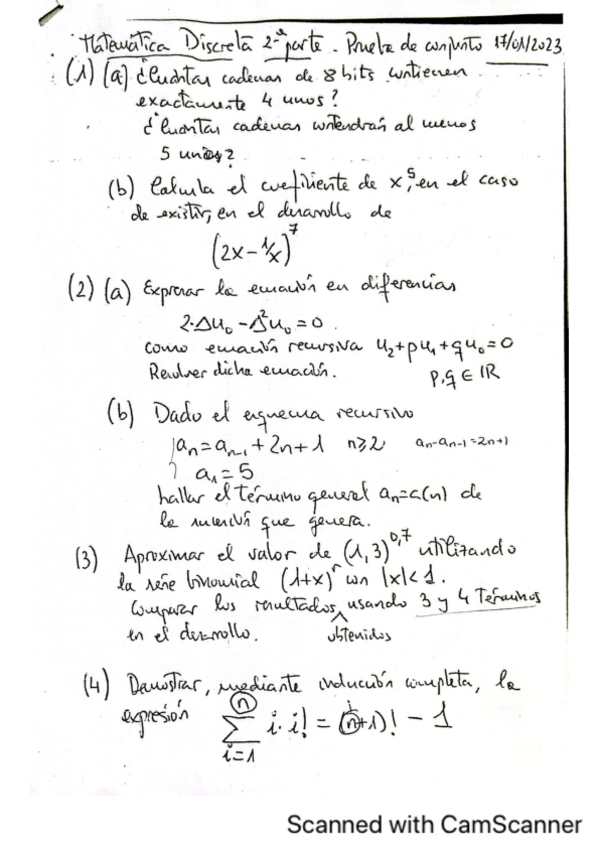 Matemática Discreta 2ª parte. Prueba de conjunto 17/01/2023
(1) (a) ¿Cuántas cadenas de 8 bits contienen
exactamente 4 unos?
¿Cuántas cadenas contendrán al menos
5 unos?
(b) Calcula el coeficiente de x⁵, en el caso
de existir, en el desarrollo de
(2x - 1/x)⁷
(2) (a) Expresar la ecuación en diferencias
2·Δu₀ - Δ²u₀ = 0.
como ecuación recursiva u₂+pu₁+qu₀=0
Resolver dicha ecuación. p,q ∈ IR
(b) Dado el esquema recursivo
aₙ = aₙ₋₁ + 2n + 1 n≥2 aₙ-aₙ₋₁=2n+1
a₁ = 5
hallar el término general aₙ=a(n) de
la sucesión que genera.
(3) Aproximar el valor de (1,3)^0,7 utilizando
la serie binomial (1+x)^r con |x|<1.
Comparar los resultados usando 3 y 4 términos
en el desarrollo. obtenidos
(4) Demostrar, mediante inducción completa, la
expresión ∑ᵢ₌₁ⁿ i·i! = (n+1)! - 1
Scanned with CamScanner